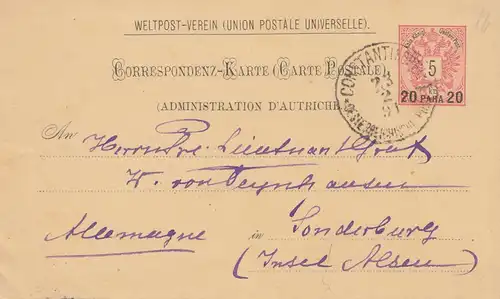 WELTPOST-VEREIN (UNION POSTALE UNIVERSELLE).
CORRESPONDENZ-KARTE (CARTE POSTALE)
(ADMINISTRATION D'AUTRICHE
5
20 PARA 20
CONSTANTINOPEL
An Herrn Pr. Lieutenant Graf
W. von Oeynhausen
Allemagne in Sonderburg
(Insel Alsen)